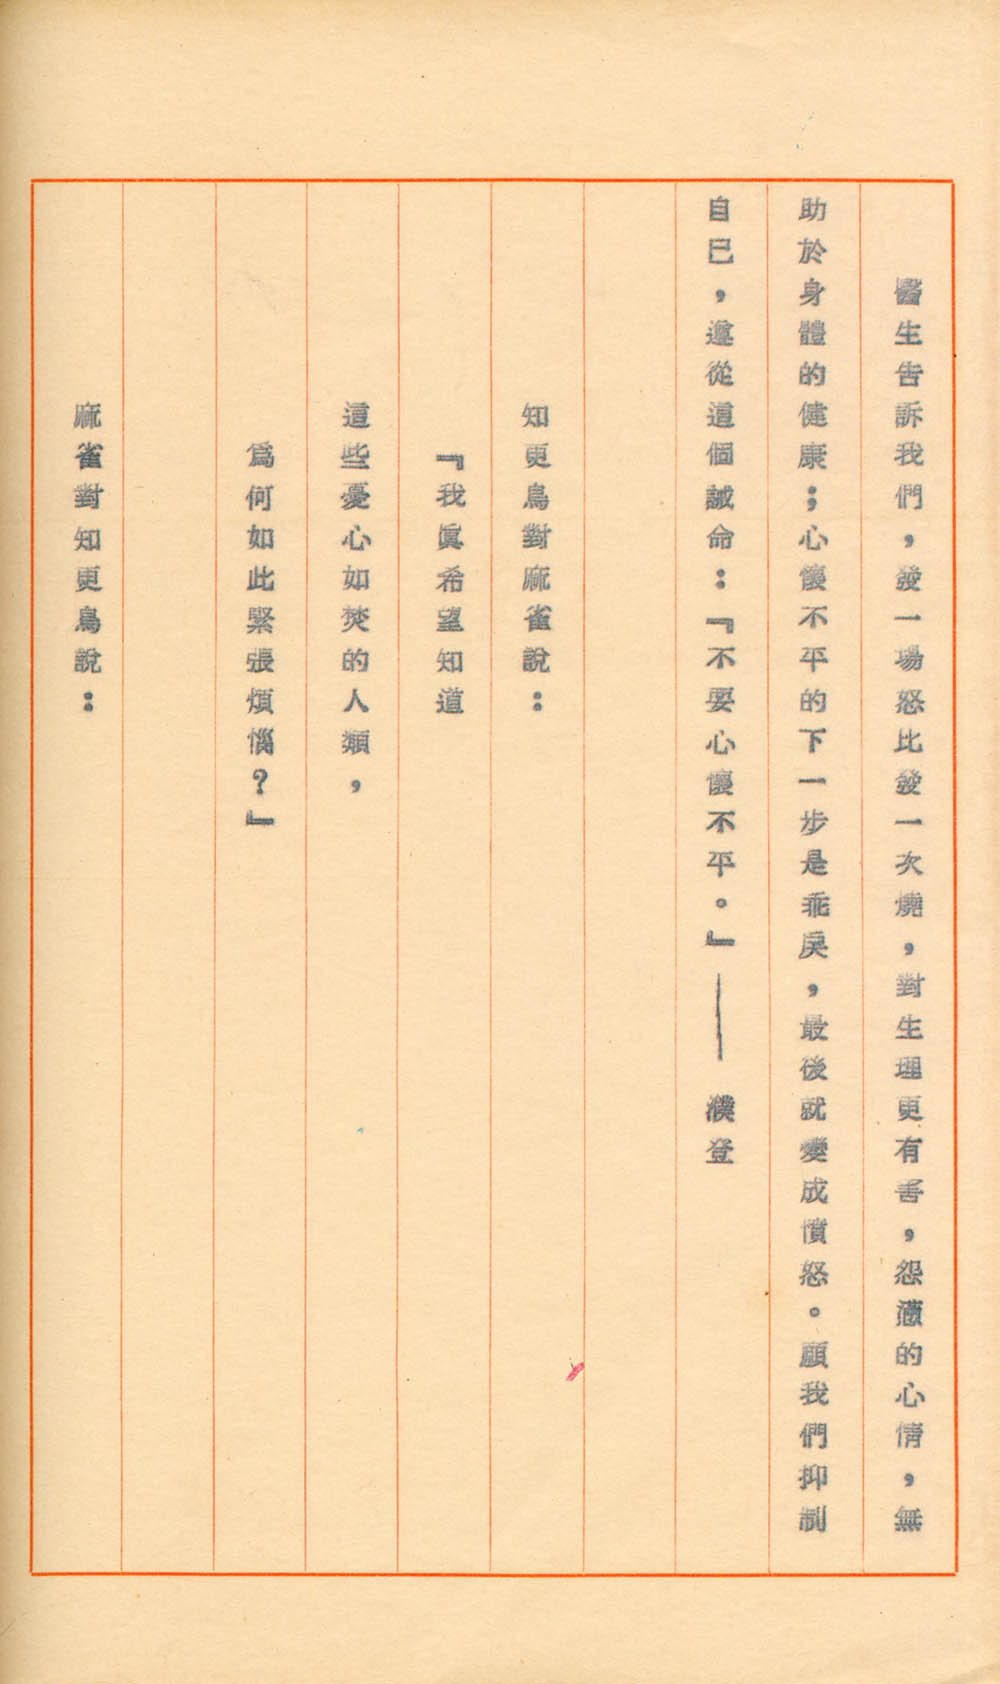 醫生告訴我們，發一場怒比發一次燒，對生理更有害，怨懣的心情，無
助於身體的健康；心懷不平的下一步是乖戾，最後就變成憤怒。願我們抑制
自已，遵從這個誡命：『不要心懷不平。』——濮登
知更鳥對麻雀說：
『我眞希望知道
這些憂心如焚的人類，
爲何如此緊張煩惱？』
麻雀對知更鳥說：